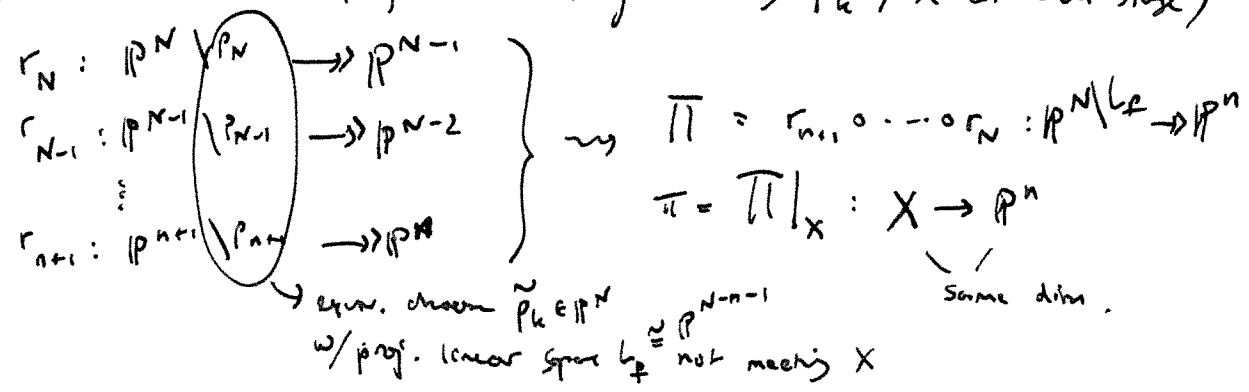 r_N : ℙ^N \ p_N ↠ ℙ^{N-1}
r_{N-1} : ℙ^{N-1} \ p_{N-1} ↠ ℙ^{N-2}
⋮
r_{n+1} : ℙ^{n+1} \ p_{n+1} ↠ ℙ^n
⇝ Π = r_{n+1} ∘ ⋯ ∘ r_N : ℙ^N \ L_p → ℙ^n
π = Π|_X : X → ℙ^n
same dim.
→ equiv. chosen p̃_k ∈ ℙ^N
w/ proj. linear space L_p ≅ ℙ^{N-n-1} not meeting X